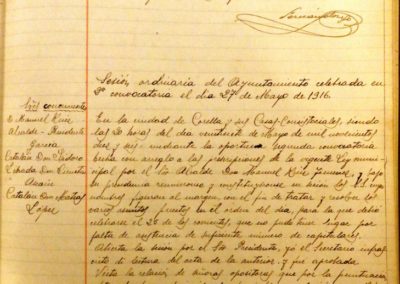 Sesión ordinaria del Ayuntamiento celebrada en
2ª convocatoria el día 27 de Mayo de 1916.
Sres. concurrentes
D. Manuel Ruiz
Alcalde-Presidente
García
Catalán Don Isidoro
Catalán Don Matías
López
En la ciudad de Corella y sus Casas Consistoriales, siendo
las 20 horas del día veintisiete de Mayo de mil novecientos
diez y seis mediante la oportuna segunda convocatoria
hecha con arreglo a las prescripciones de la vigente Ley muni-
cipal por el Sr. Alcalde Don Manuel Ruiz y bajo
su presidencia reunieron y constituyéronse en sesión los S.S. cuyos
nombres figuran al margen, con el fin de tratar y resolver los
varios puestos en el orden del día, para la que debió
celebrarse el 26 de los corrientes, que no pudo tener lugar por
falta de asistencia de suficiente número de capitulares.
Abierta la sesión por el Sr. Presidente, yo el Secretario infras-
crito di lectura del acta de la anterior y fue aprobada
Vista la relación de señores opositores que por la puntuación